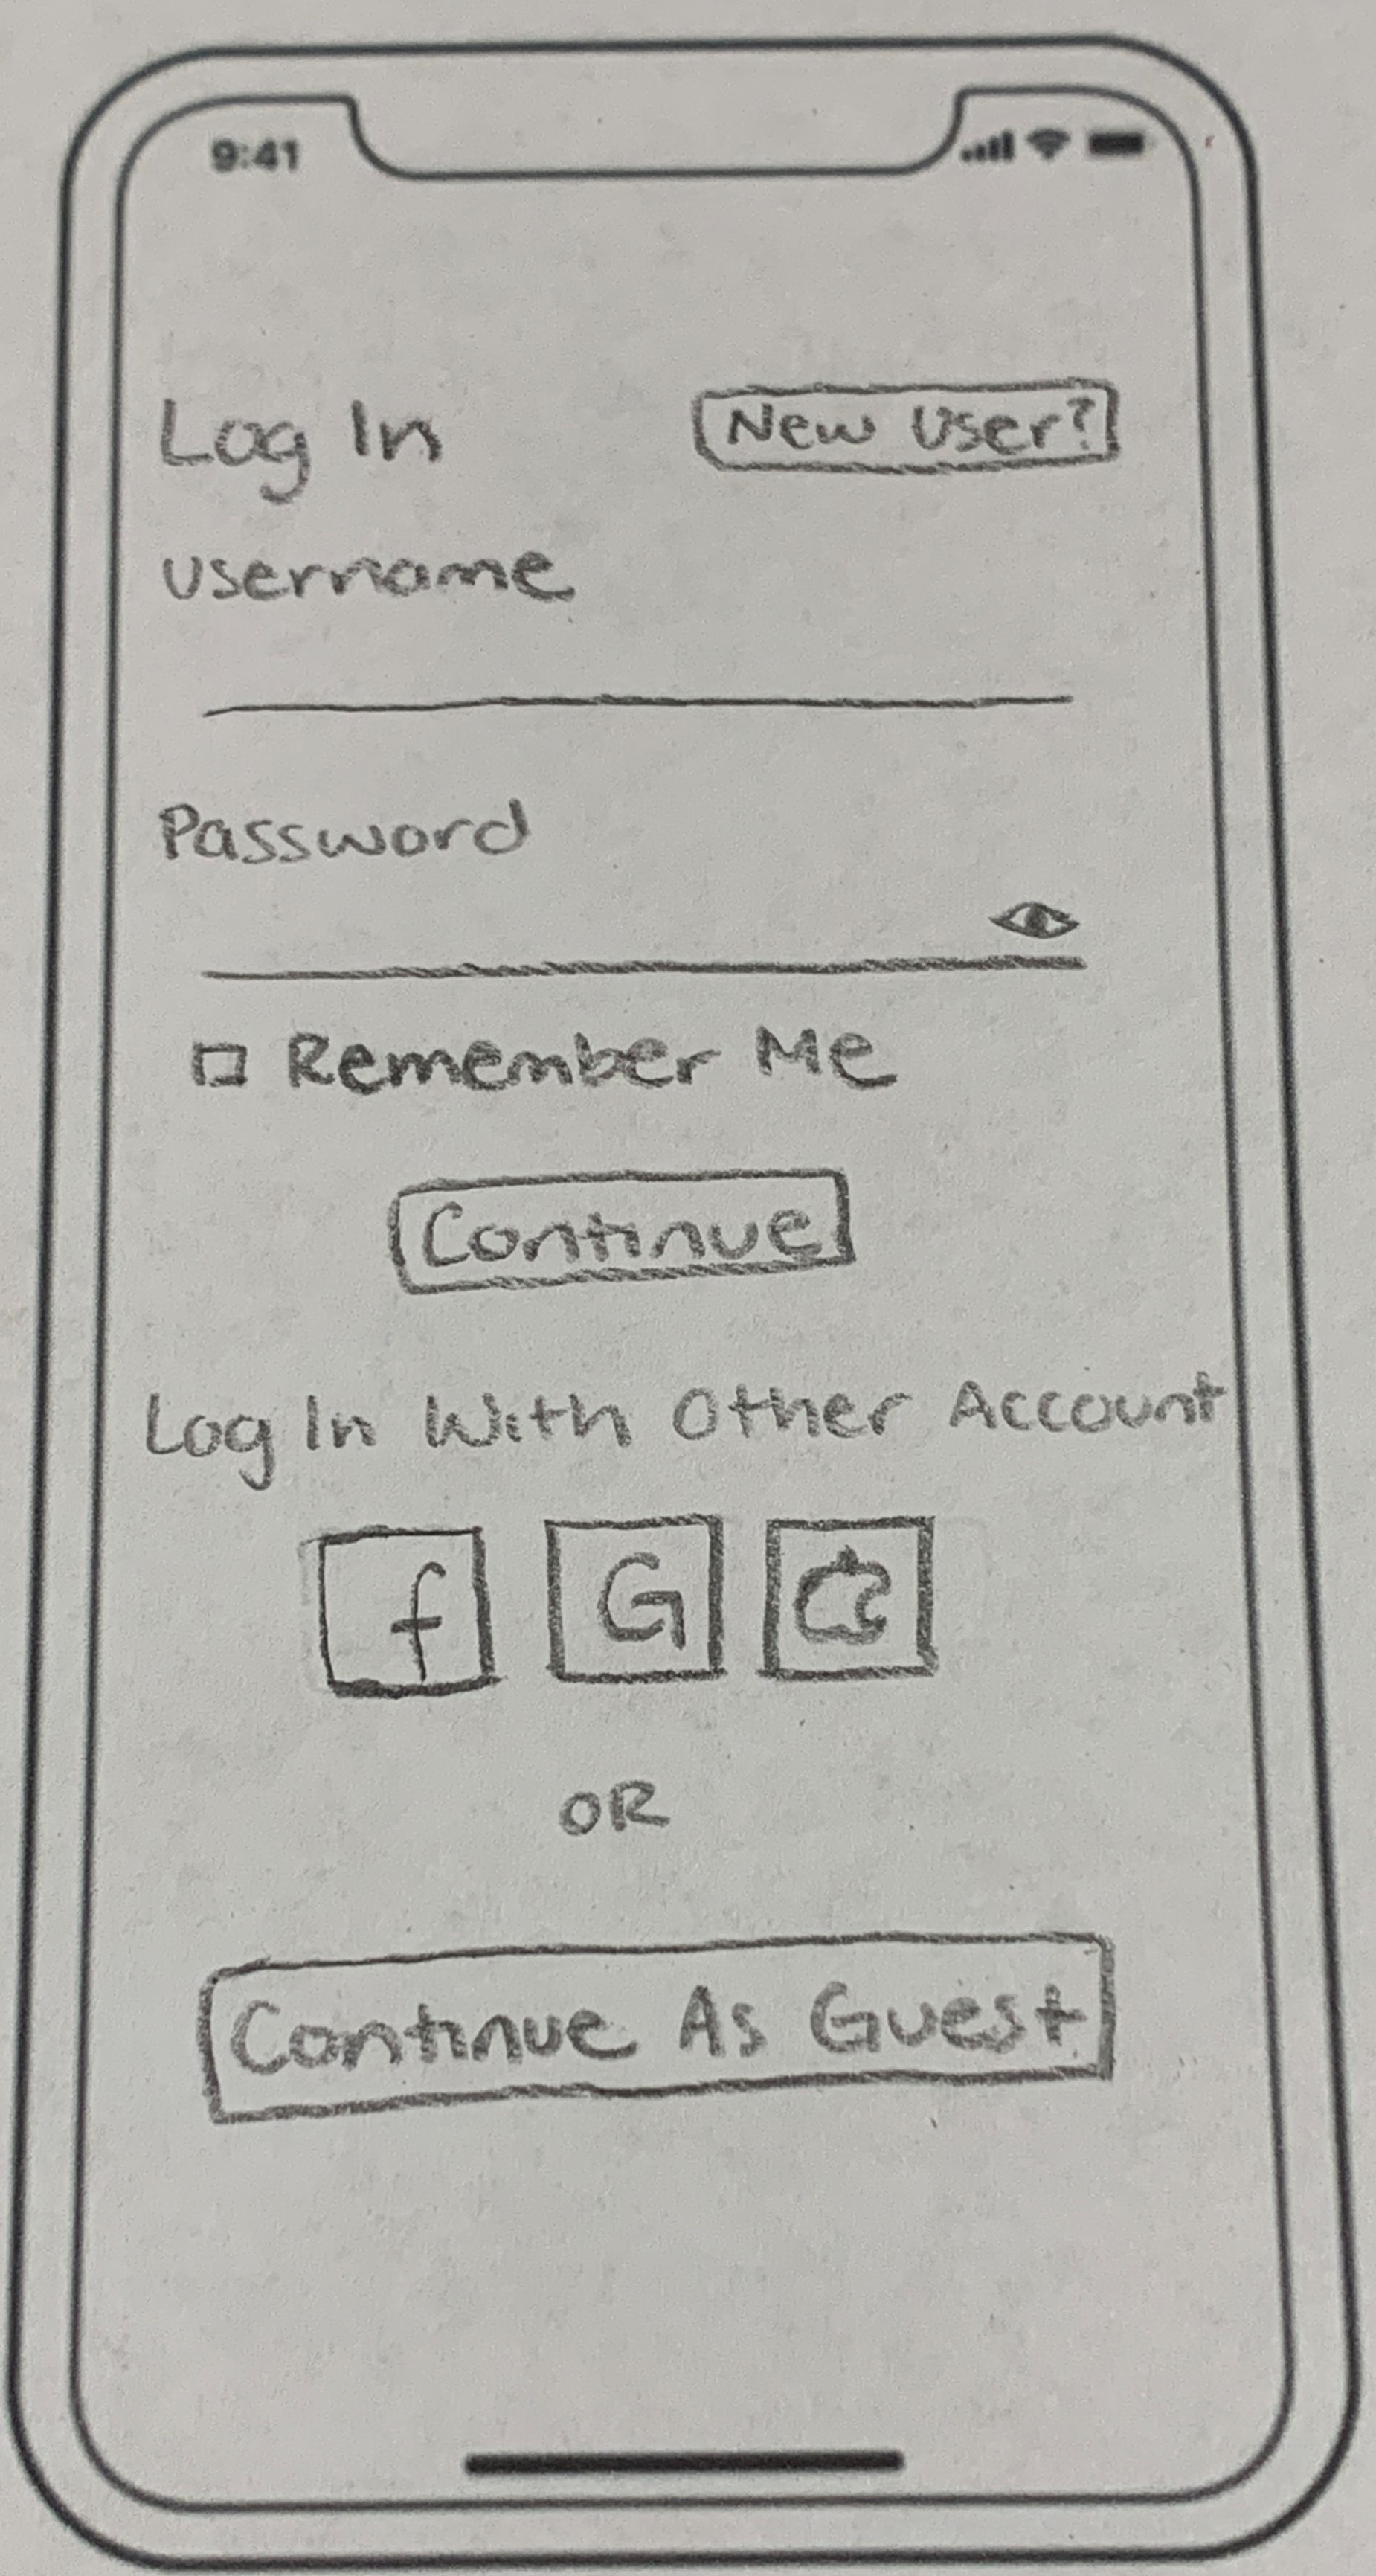 9:41
Log In
New User?
username
Password
Remember Me
Continue
Log In With Other Account
f G
OR
Continue As Guest